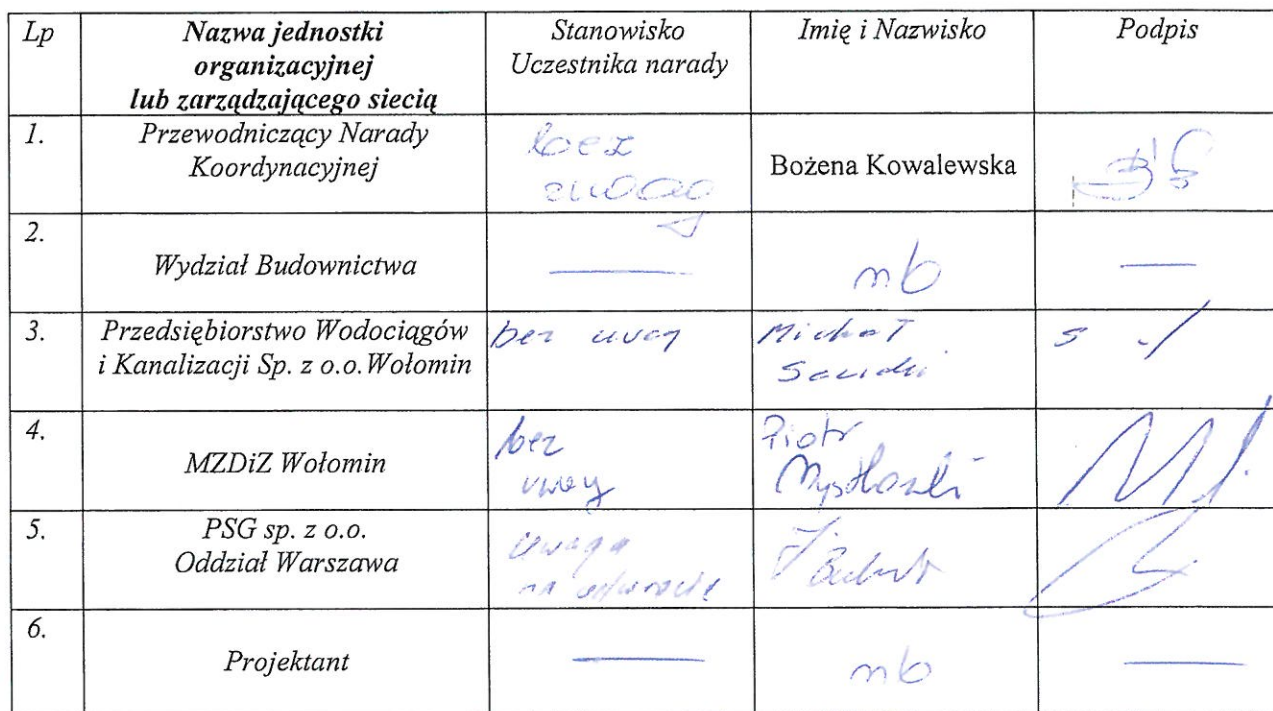 Lp
Nazwa jednostki
organizacyjnej
lub zarządzającego siecią
Stanowisko
Uczestnika narady
Imię i Nazwisko
Podpis
1.
Przewodniczący Narady
Koordynacyjnej
bez
uwag
Bożena Kowalewska
2.
Wydział Budownictwa
nb
3.
Przedsiębiorstwo Wodociągów
i Kanalizacji Sp. z o.o.Wołomin
bez uwag
Michał
4.
MZDiZ Wołomin
bez
uwag
Piotr
5.
PSG sp. z o.o.
Oddział Warszawa
Uwaga
na odwrocie
6.
Projektant
nb